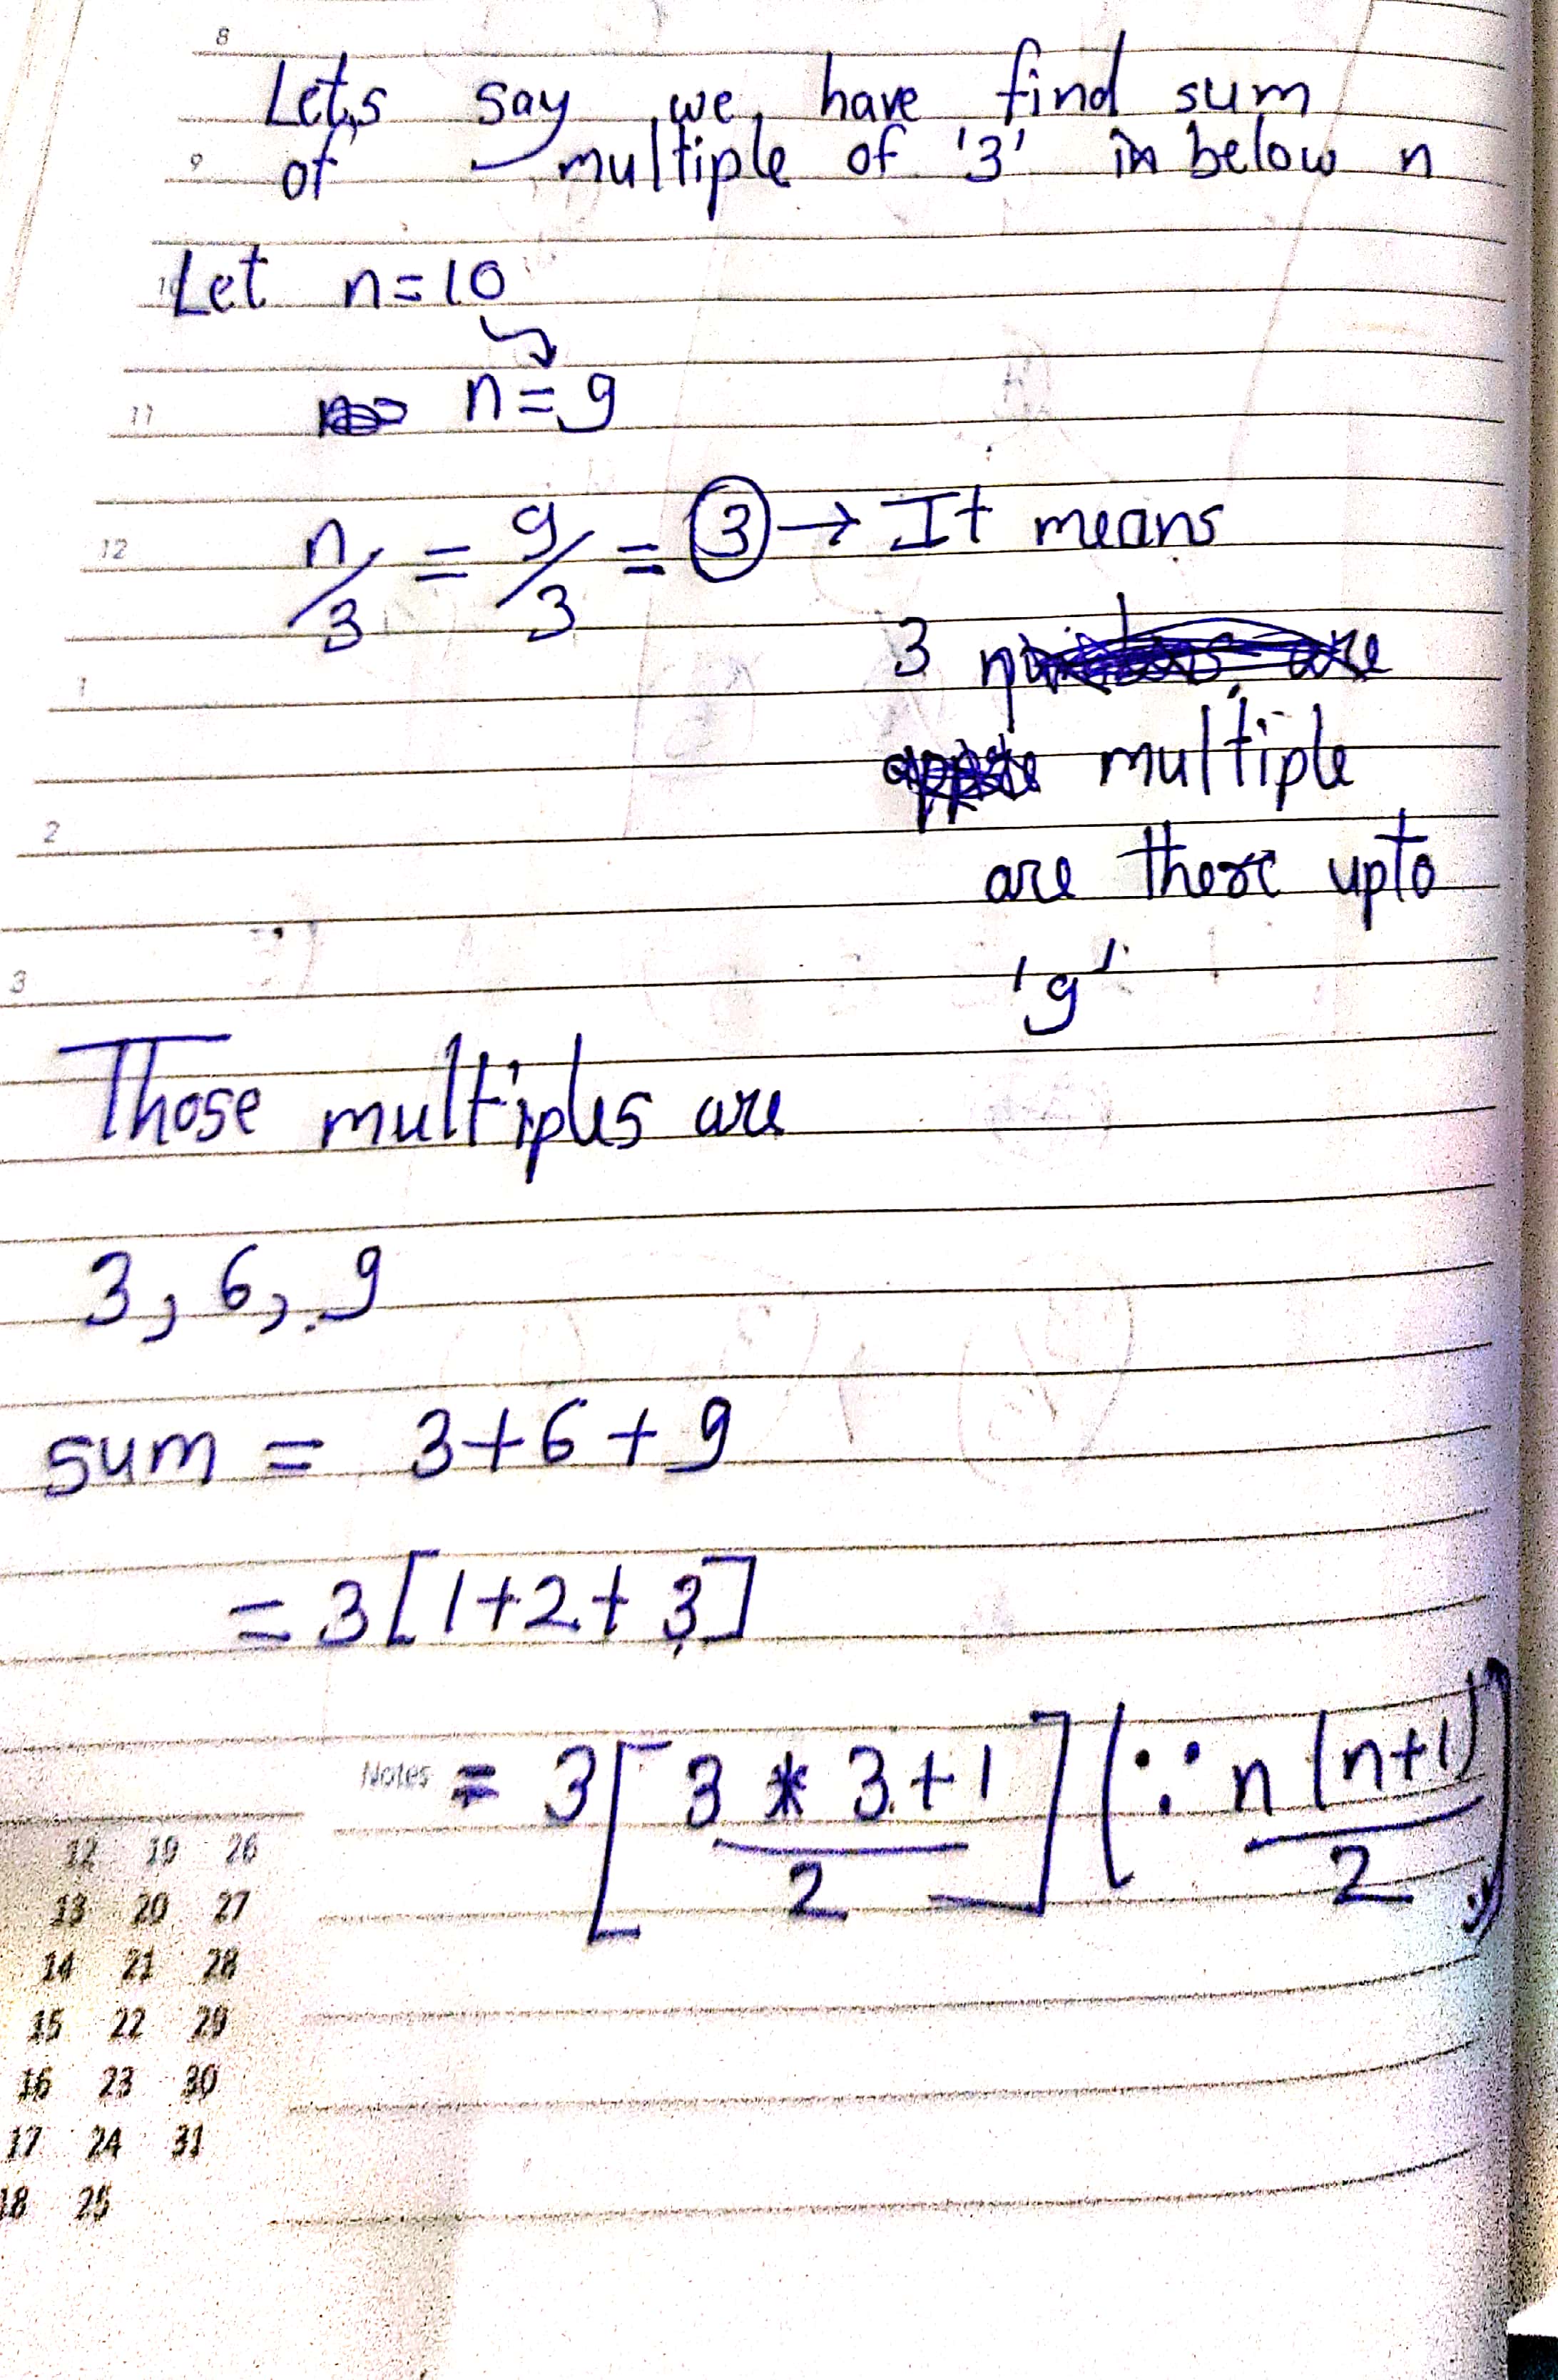 8
Let's say we have find sum
9 of multiple of '3' in below n
10 Let n=10
11 n=9
12 n/3 = 9/3 = 3 → It means
1 3
multiple
2
are there upto
3 '9'
Those multiples are
3, 6, 9
sum = 3+6+9
= 3[1+2+3]
Notes = 3[3*3+1/2] (∵ n(n+1)/2)
12 19 26
13 20 27
14 21 28
15 22 29
16 23 30
17 24 31
18 25